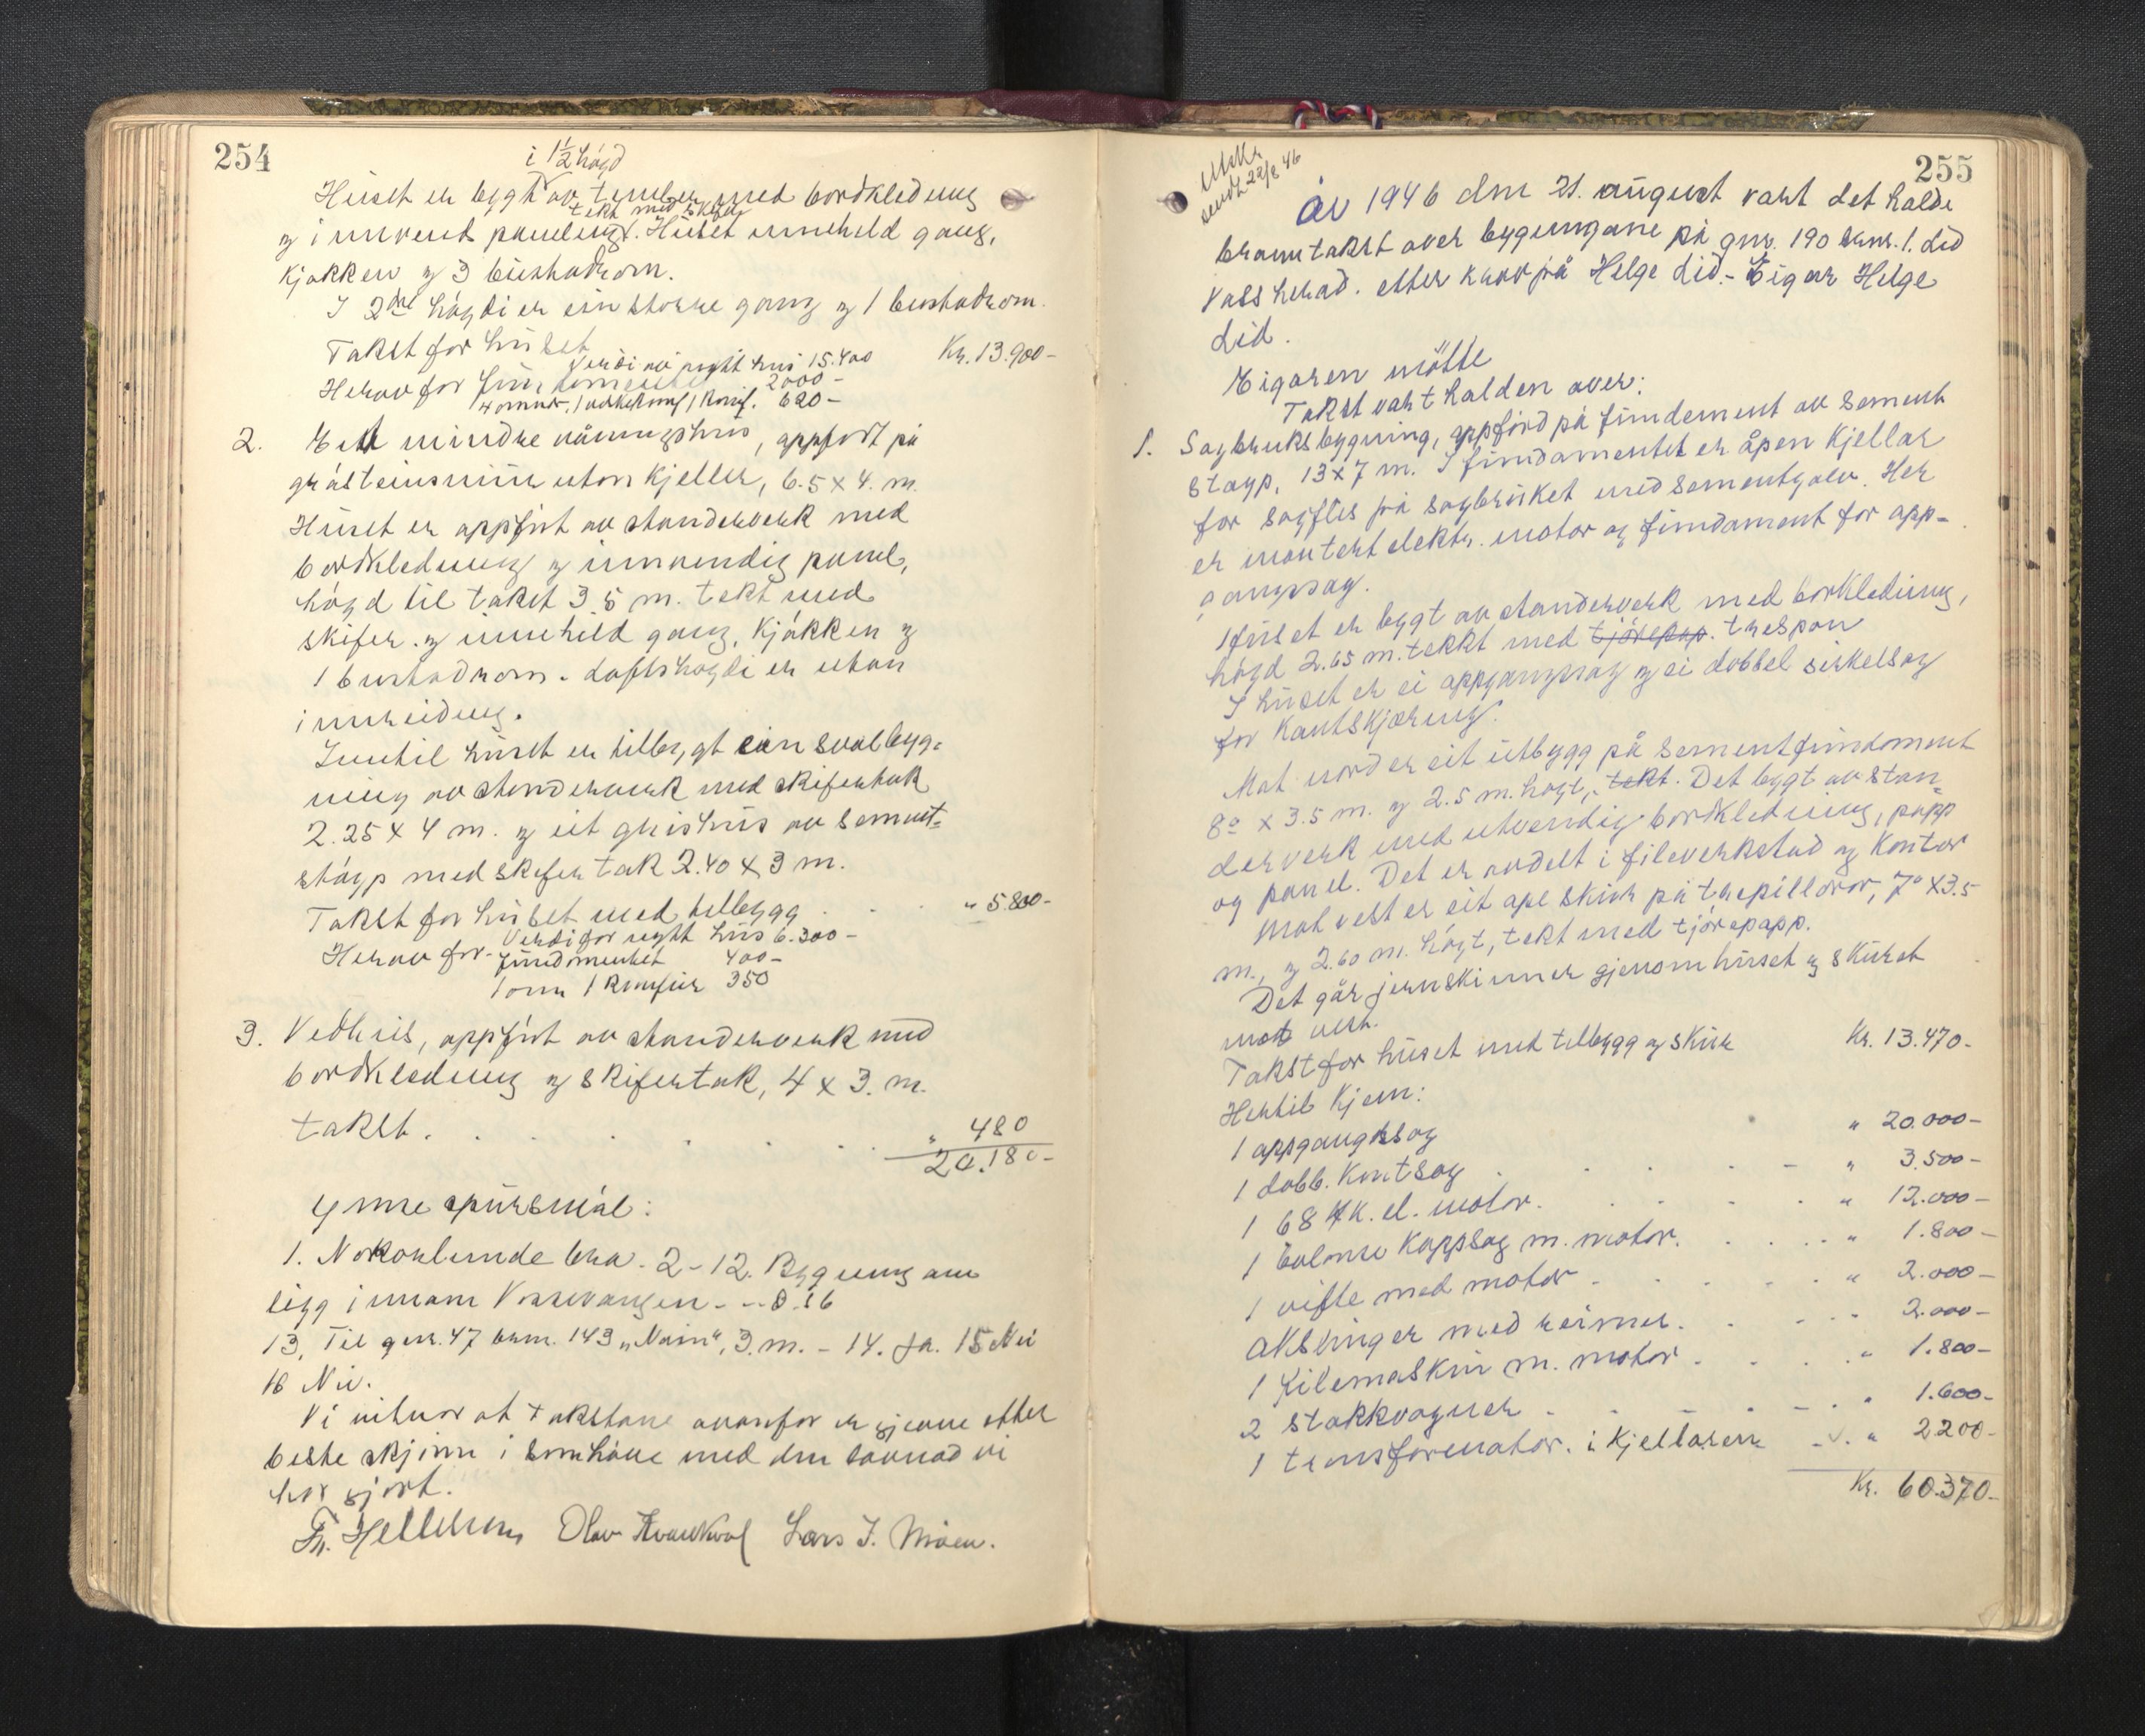 254
i 1½ högd
Huset er bygt av tember med bordkledning
tekt med skifer
og innvend paneling. Huset inneheld gang,
Kjøkken og 3 bushadrom.
I 2dre högdi er ein större gang og 1 bushadrom.
Takst for huset Kr. 13.900-
Verdi av nytt hus 15.400
Herav for fundamentet 2000-
4 omnar, 1 vaskekum, 1 komf. 620-
2. Eitt mindre våningshus, appfört på
gråsteinsmur utan kjeller, 6.5 x 4. m.
Huset er appfört av standerverk med
bordkledning og innvendig panel,
högd til taket 3.5 m. tekt med
skifer. og inneheld gang, kjökken og
1 bushadrom. Loftshögdi er utan
innreiding.
Inntil huset er tilbygt ein svalbyg-
ning av standerverk med skifertak
2.25 x 4 m. og eit grishus av sement-
stöyp med skifer tak 2.40 x 3 m.
Takst for huset med tilbygg . . . " 5.800-
Verdi for nytt hus 6.300-
Herav for fundamentet 400-
1 omn 1 komfur 350
3. Vedhus, appfört av standerverk med
bordkledning og skifertak, 4 x 3. m.
takst. . . . . . . " 480
20.180-
Ymse spursmål:
1. Nokonlunde bra. 2-12. Bygning an
ligg innam Vossevangen - -- 8.16
13, Til gnr. 47 bnr. 143 "Nain", 3. m. - 14. Ja. 15 Nei
16 Nei.
Vi vitnar at takstane ovanfor er gjevne etter
beste skjönn i samhöve med den sovnad vi
har gjort.
Fr. Hellesnes Olav Kvarekval Lars J. Moen.
255
Utskr.
sendt 22/8 46
År 1946 den 21. august vart det halde
branntakst over bygningane på gnr. 190 bnr. 1. Lid
Voss herad. etter krav frå Helge Lid. - Eigar Helge
Lid.
Eigaren mötte
Takst vart halden over:
1. Sagbruksbygning, appförd på fundement av sement
støyp, 13 x 7 m. I fundamentet er åpen kjellar
for sagflis frå sagbruket med sementgolv. Her
er montert elektr. motor og fundament for app-
gangssag.
Huset er bygt av standerverk med borkledning,
högd 2.65 m. tekkt med tjörepap. trespon
I huset er ei appgangssag og ei dobbel sirkelsag
for kantskjæring.
Mot nord er eit utbygg på sementfundament
8º x 3.5 m. og 2.5 m. högt, tekt. Det bygt av stan-
derverk med utvendig bordkledning, papp
og panel. Det er avdelt i fileverkstad og kontor
Mot vest er eit ope skur på trepillarar, 7º x 3.5
m., og 2.60 m. högt, tekt med tjörepapp.
Det går jernskinner gjenom huset og skuret
mot vest.
Takst for huset med tilbygg og skur Kr. 13.470-
Hertil kjem:
1 appgangssag " 20.000-
1 dobb. kantsag . . . . - " 3.500-
1 68 HK. el. motor. . . . . " 12.000-
1 balanse kappsag m. motor. . . . . " 1.800-
1 vifte med motor . . . . . " 2.000-
Akslinger med reimer. . . . . 2.000-
1 filemaskin m. motor . . . . " 1.800-
2 stakkvogner . - . . - . " 1.600-
1 transformator. i kjellaren - . " 2200-
Kr. 60.370-